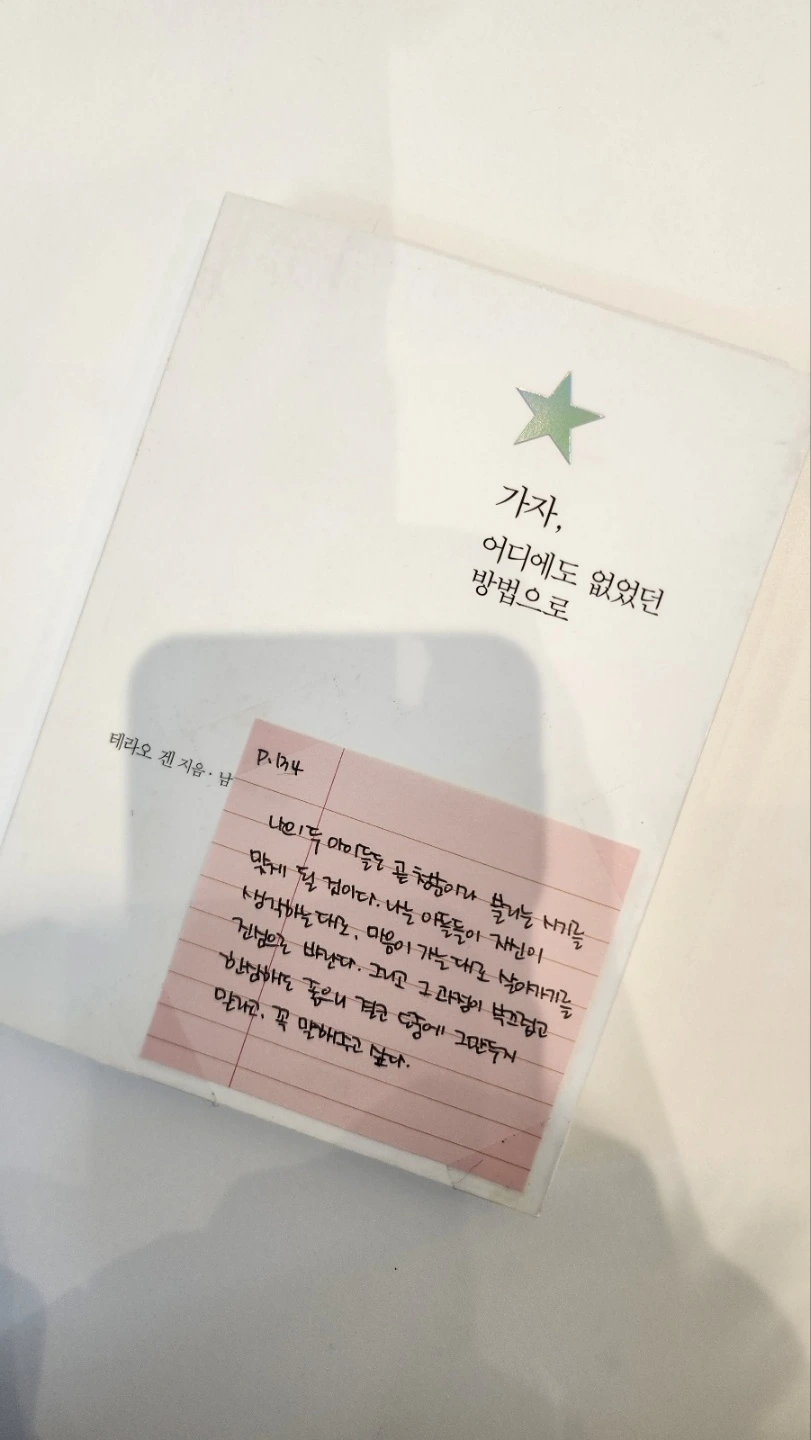 가자,
어디에도 없었던
방법으로
테라오 겐 지음 · 남
P.134
나의 두 아이들도 곧 청춘이라 불리는 시기를
맞게 될 것이다. 나는 아들들이 자신이
생각하는 대로, 마음이 가는 대로 살아가기를
진심으로 바란다. 그리고 그 과정이 부끄럽고
한심해도 좋으니 결코 도중에 그만두지
말라고, 꼭 말해주고 싶다.